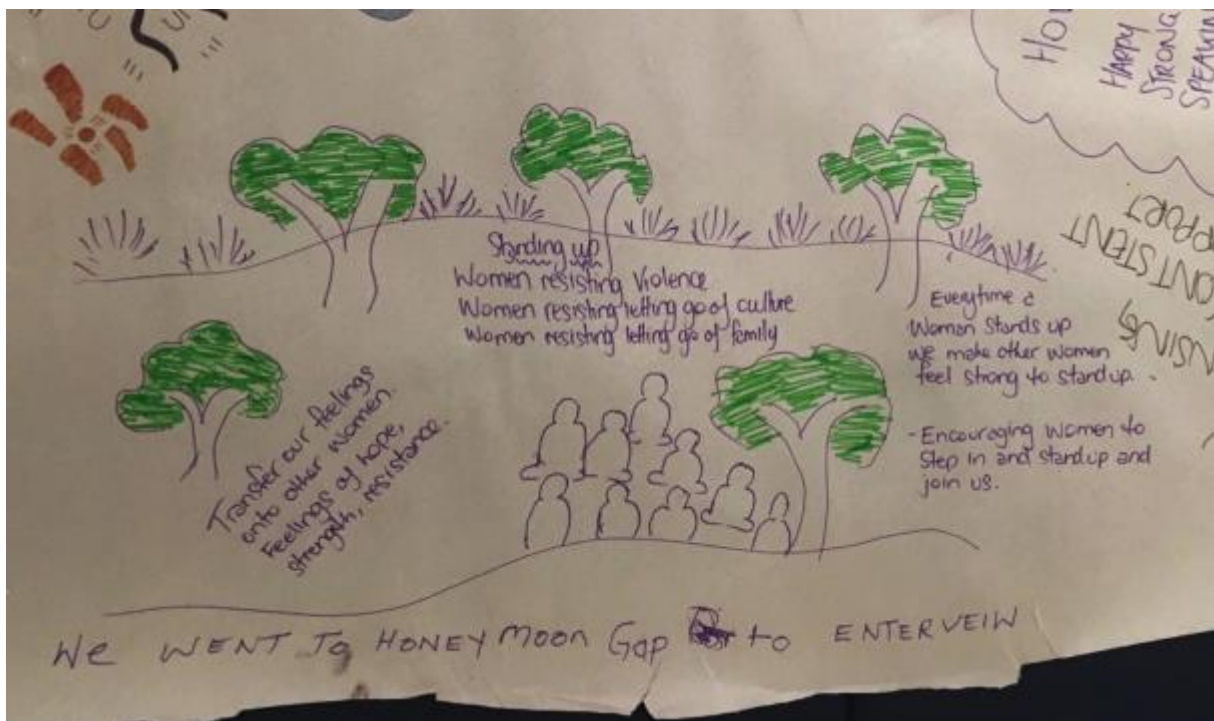 HAPPY
STRONG
SPEAKIN
Standing up
Women resisting Violence
Women resisting letting go of culture
Women resisting letting go of family
Everytime a
Woman stands up
we make other women
feel strong to standup.
- Encouraging women to
step in and standup and
join us.
Transfer our feelings
onto other women.
Feelings of hope,
strength, resistance.
We WENT To HONEYMOON Gap to ENTERVEIW